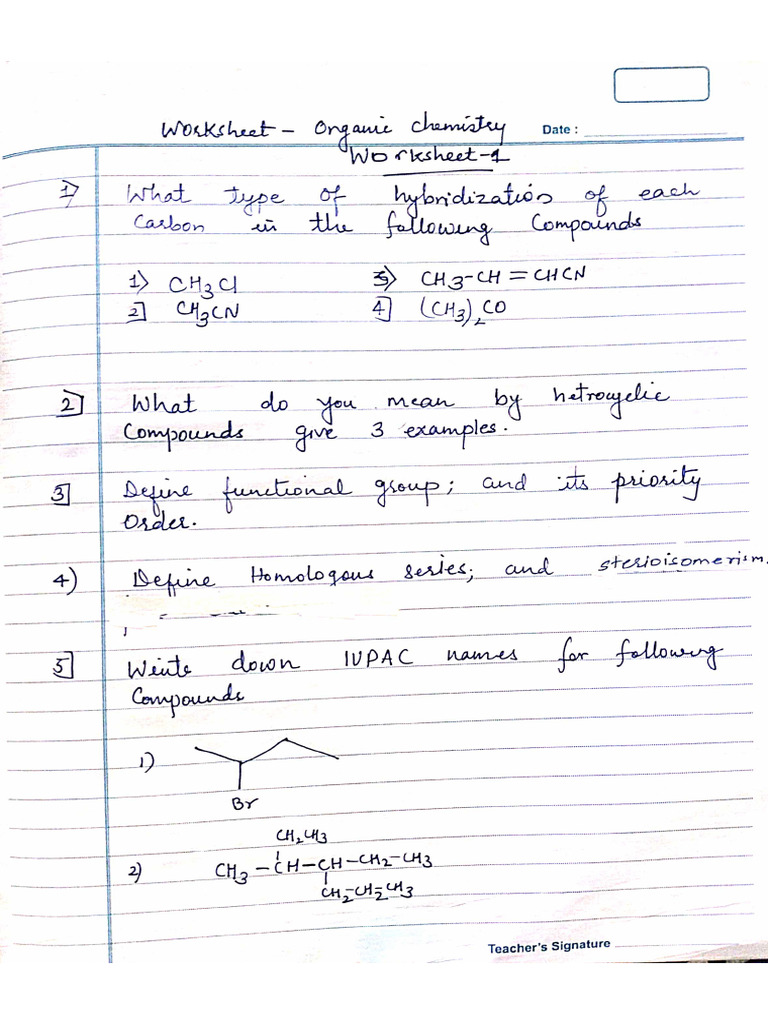 Worksheet - Organic chemistry Date :
Worksheet-1
1) What type of hybridization of each
Carbon in the following Compounds
1) CH3Cl 3) CH3-CH=CHCN
2] CH3CN 4] (CH3)2CO
2] What do you mean by hetrocyclic
Compounds give 3 examples.
3] Define functional group; and its priority
Order.
4) Define Homologous series; and sterioisomerism.
5] Write down IUPAC names for following
Compounds
1)
Br
CH2CH3
2) CH3-CH-CH-CH2-CH3
CH2-CH2-CH3
Teacher's Signature